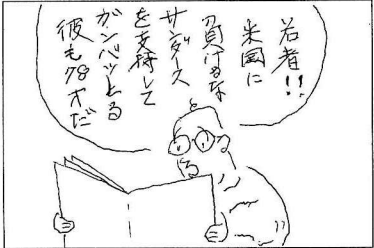 若者!!
米国に
負けるな
サンダース
を支持して
ガンバットる
彼も78才だ